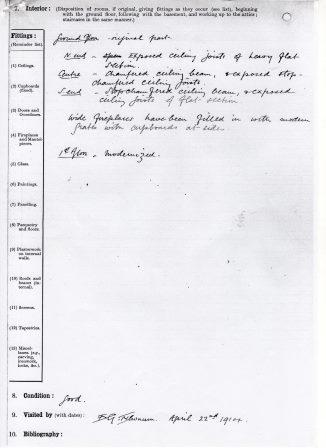 7. Interior : (Disposition of rooms, if original, giving fittings as they occur (see list), beginning
with the ground floor, following with the basement, and working up to the attics;
staircases in the same manner.)
Fittings :
(Reminder list).
(1) Ceilings.
(2) Cupboards
(fixed).
(3) Doors and
Overdoors.
(4) Fireplaces
and Mantel-
pieces.
(5) Glass.
(6) Paintings.
(7) Panelling.
(8) Parquetry
and floors.
(9) Plasterwork
on internal
walls.
(10) Roofs and
beams (in-
ternal).
(11) Screens.
(12) Tapestries.
(13) Miscel-
laneous (e.g.,
carving,
ironwork,
locks, &c.)
Ground floor - original part.
N end - exposed ceiling joists of heavy flat
section.
Centre - chamfered ceiling beam, & exposed stop-
chamfered ceiling joists.
S end - stopchamfered ceiling beam, & exposed
ceiling joists of flat section
Wide fireplaces have been filled in with modern
grates with cupboards at side.
1st floor - modernized.
8. Condition : Good.
9. Visited by (with dates) : April 22nd
10. Bibliography :